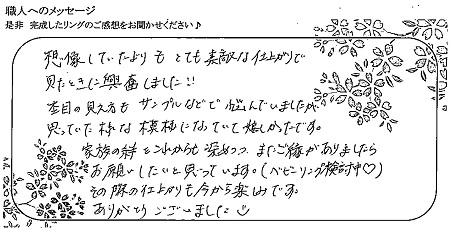 職人へのメッセージ
是非 完成したリングのご感想をお聞かせください♪
想像していたよりも とても素敵な仕上がりで
見たときに興奮しました!!
杢目の見え方も サンプルなどで 悩んでいましたが
思っていた様な模様になっていて嬉しかったです。
家族の絆をこれからも深めつつ またご縁がありましたら
お願いしたいと思っています。(ベビーリング検討中♡)
その際の仕上がりも今から楽しみです。
ありがとうございました